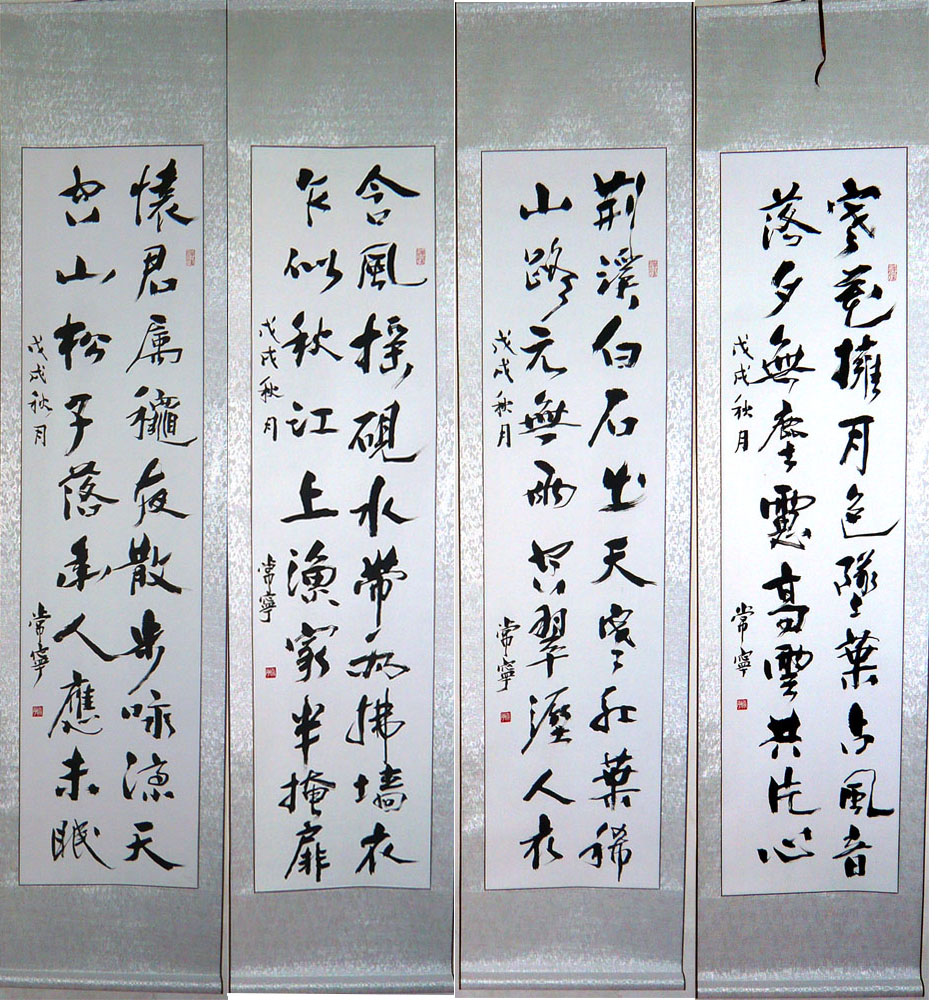 寒花擁月色墜葉占風音
落夕無塵慮高雲共片心
戊戌秋月 常寧
荆溪白石出天寒紅葉稀
山路元無雨空翠溼人衣
戊戌秋月 常寧
含風摇硯水帶雨拂墙衣
乍似秋江上漁家半掩扉
戊戌秋月 常寧
懷君屬穐夜散步咏涼天
空山松子落幽人應未眠
戊戌秋月 常寧